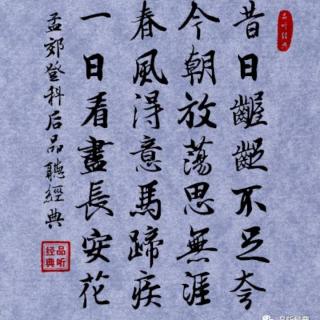 昔日齷齪不足夸
今朝放蕩思無涯
春風得意馬蹄疾
一日看盡長安花
孟郊登科后品聽經典
品听经典
品听经典
品听经典